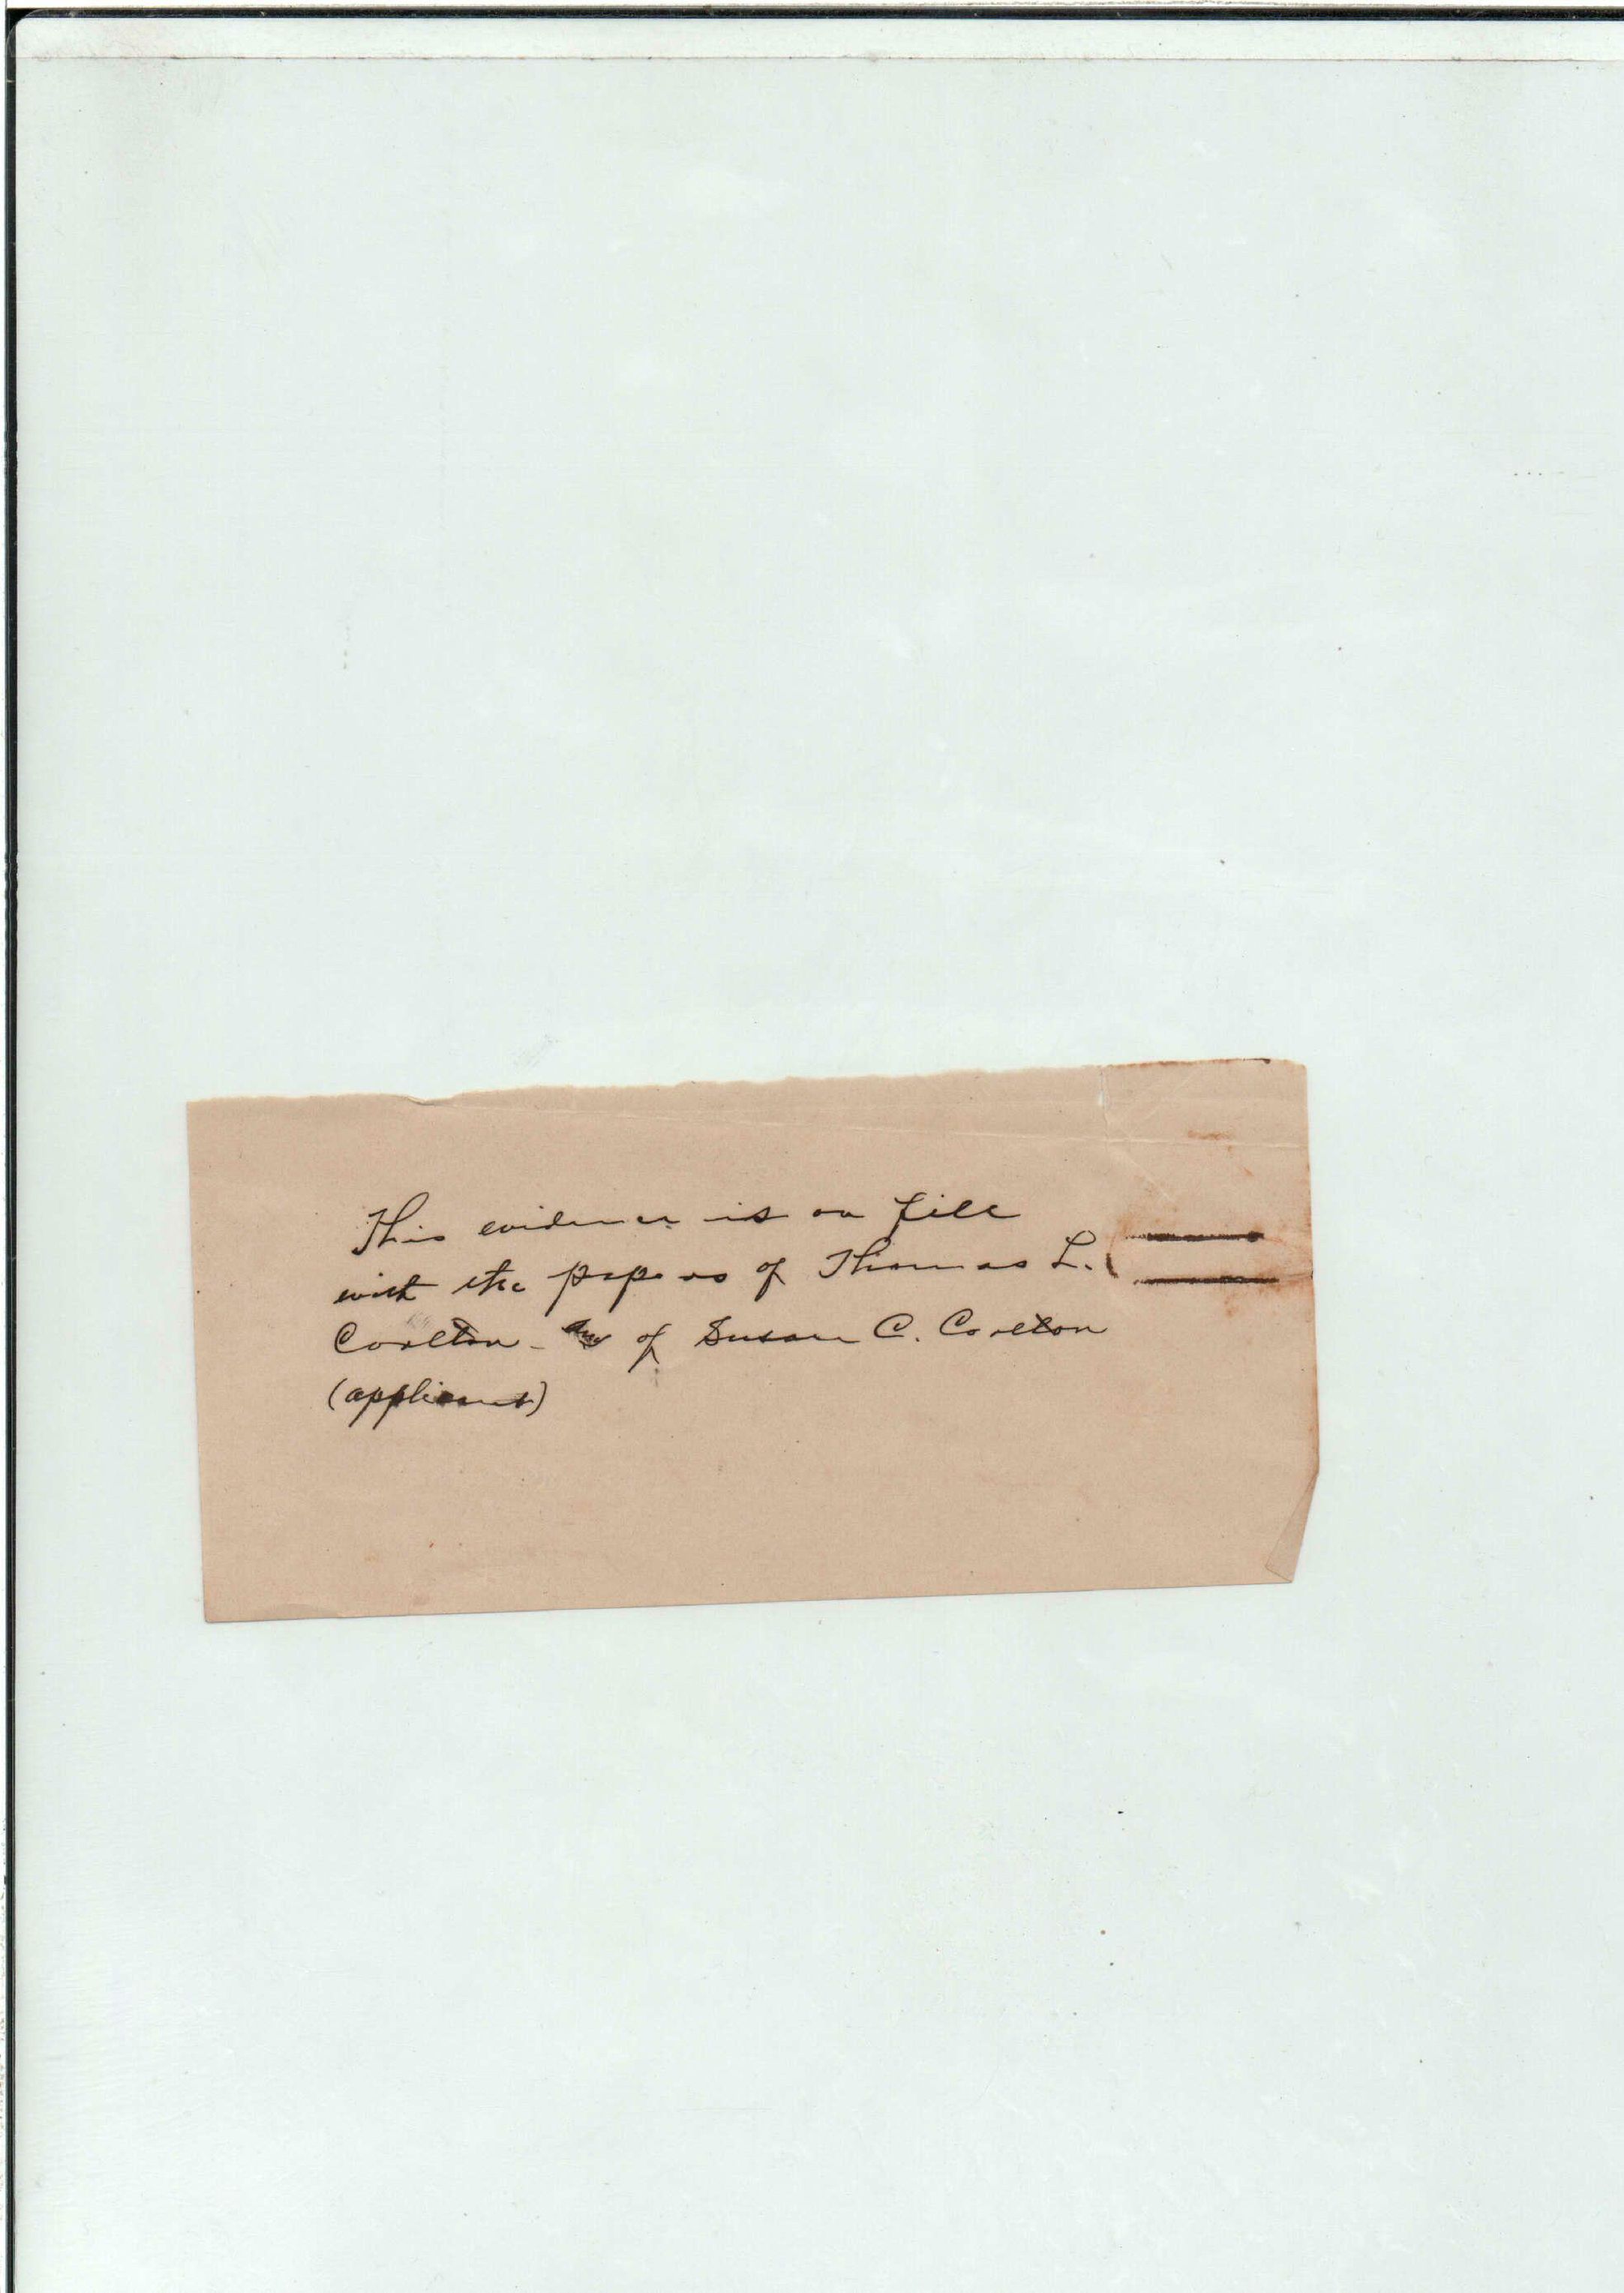 This evidence is on file
with the papers of Thomas L.
Carlton - of Susan C. Carlton
(applicant)